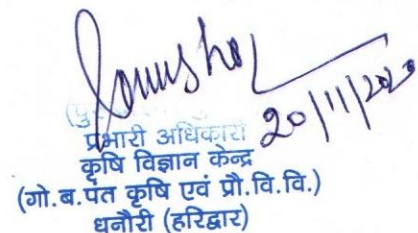 20/11/2020
प्रभारी अधिकारी
कृषि विज्ञान केन्द्र
(गो.ब.पंत कृषि एवं प्रौ.वि.वि.)
धनौरी (हरिद्वार)